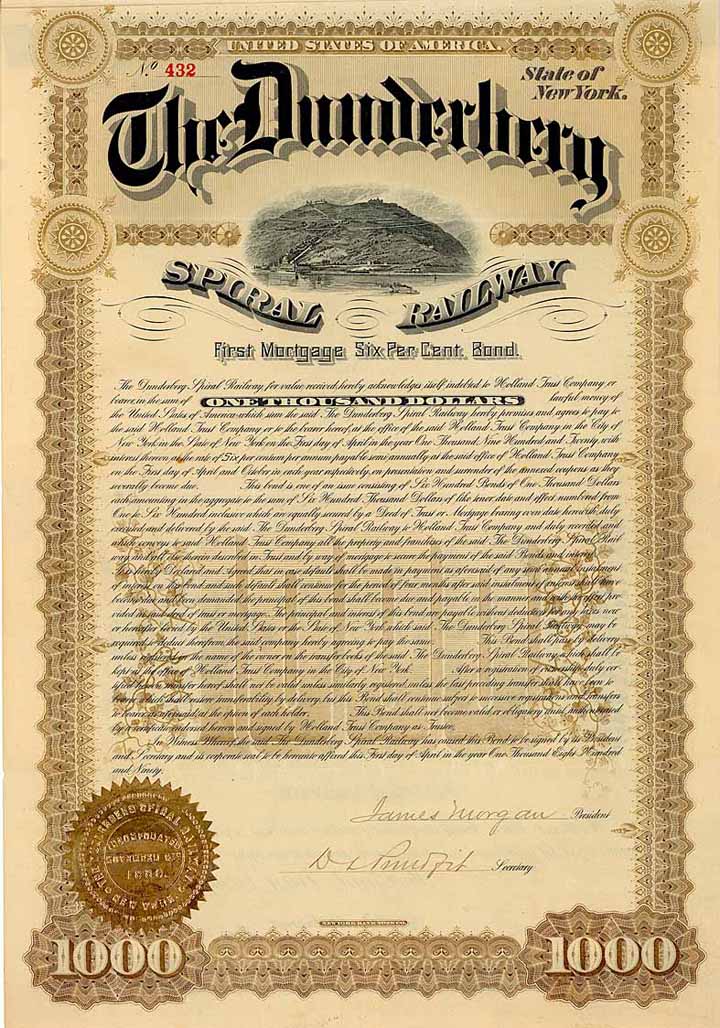 UNITED STATES OF AMERICA.
No. 432
State of
New York.
The Dunderberg
SPIRAL RAILWAY
First Mortgage Six Per Cent. Bond.
The Dunderberg Spiral Railway, for value received, hereby acknowledges itself indebted to Holland Trust Company, or
bearer, in the sum of ONE THOUSAND DOLLARS lawful money of
the United States of America which sum the said The Dunderberg Spiral Railway hereby promises and agrees to pay to
the said Holland Trust Company or to the bearer hereof, at the office of the said Holland Trust Company in the City of
New York in the State of New York on the First day of April in the year One Thousand Nine Hundred and Twenty, with
interest thereon at the rate of Six per centum per annum payable semi-annually at the said office of Holland Trust Company
on the First day of April and October in each year respectively, on presentation and surrender of the annexed coupons as they
severally become due. This bond is one of an issue consisting of Six Hundred Bonds of One Thousand Dollars
each amounting in the aggregate to the sum of Six Hundred Thousand Dollars of like tenor, date and effect, numbered from
One to Six Hundred inclusive which are equally secured by a Deed of Trust or Mortgage bearing even date herewith, duly
executed and delivered by the said The Dunderberg Spiral Railway to Holland Trust Company and duly recorded and
which conveys to said Holland Trust Company all the property and franchises of the said The Dunderberg Spiral Rail
way and all therein described in Trust and by way of mortgage to secure the payment of the said Bonds and interest.
It is hereby Declared and Agreed that in case default shall be made in payment as aforesaid of any semi-annual instalment
of interest on this bond and such default shall continue for the period of four months after said instalment of interest shall have
become due and been demanded, the principal of this bond shall become due and payable in the manner and with the effect pro-
vided in said deed of trust or mortgage. The principal and interest of this bond are payable without deduction for any taxes now
or hereafter levied by the United States or the State of New York, which said The Dunderberg Spiral Railway may be
required to deduct therefrom, the said company hereby agreeing to pay the same. This Bond shall pass by delivery,
unless registered in the name of the owner in the transfer books of the said The Dunderberg Spiral Railway, which shall be
kept at the office of Holland Trust Company in the City of New York. After a registration of ownership duly cer-
tified hereon, transfer hereof shall not be valid unless similarly registered, unless the last preceding transfer shall have been to
bearer which shall restore transferability by delivery, but this Bond shall continue subject to successive registrations and transfers
to bearer as aforesaid at the option of each holder. This Bond shall not become valid or obligatory until authenticated
by a certificate endorsed hereon and signed by Holland Trust Company as Trustee.
In Witness Whereof the said The Dunderberg Spiral Railway has caused this Bond to be signed by its President
and Secretary and its corporate seal to be hereunto affixed this First day of April in the year One Thousand Eight Hundred
and Ninety.
James Morgan President
Secretary
THE DUNDERBERG SPIRAL RAILWAY
INCORPORATED
1890.
NEW YORK
NEW YORK BANK NOTE CO.
1000 1000